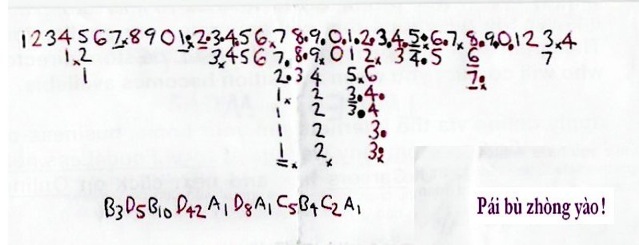 1 2 3 4 5 6 7 8 9 0 1 2 3 4 5 6 7 8 9 0 1 2 3 4 5 6 7 8 9 0 1 2 3 4
1 2 3 4 5 6 7 8 9 0 1 2 3 4 5 6 7
1 2 3 4 5 6 7
1 2 3 4
1 2 3 4
1 2 3
1 2 3
B3D5B10D42A1D8A1C5B4C2A1
Pái bù zhòng yào!